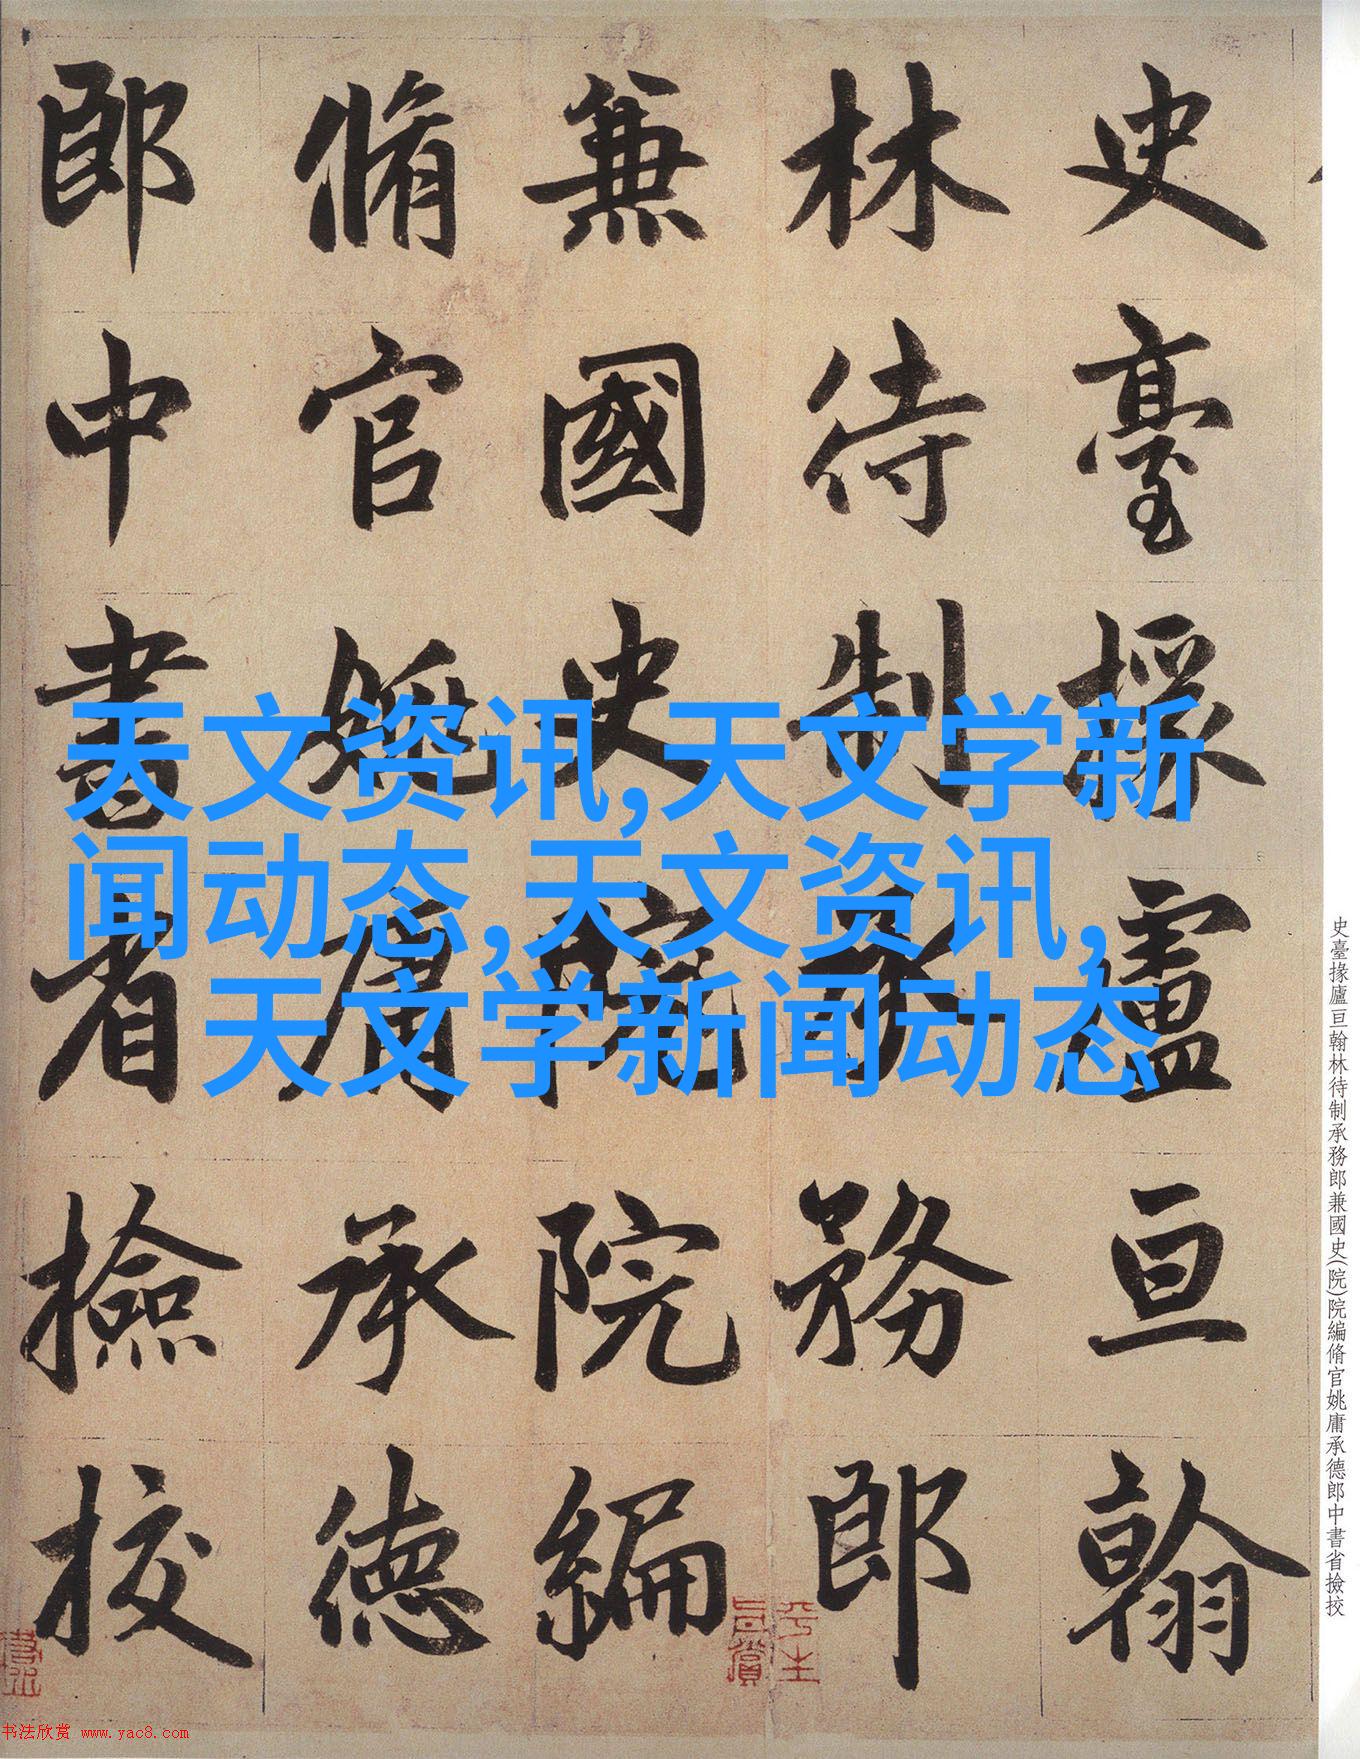 天文资讯,天文学新
闻动态,天文资讯,
天文学新闻动态
史臺掾盧亘翰
林待制承務郎
兼國史院院編
脩官姚庸承德
郎中書省撿挍
史臺掾廬亘翰林待制承務郎兼國史(院)院編脩官姚庸承德郎中書省撿挍
书法欣赏 www.yac8.com